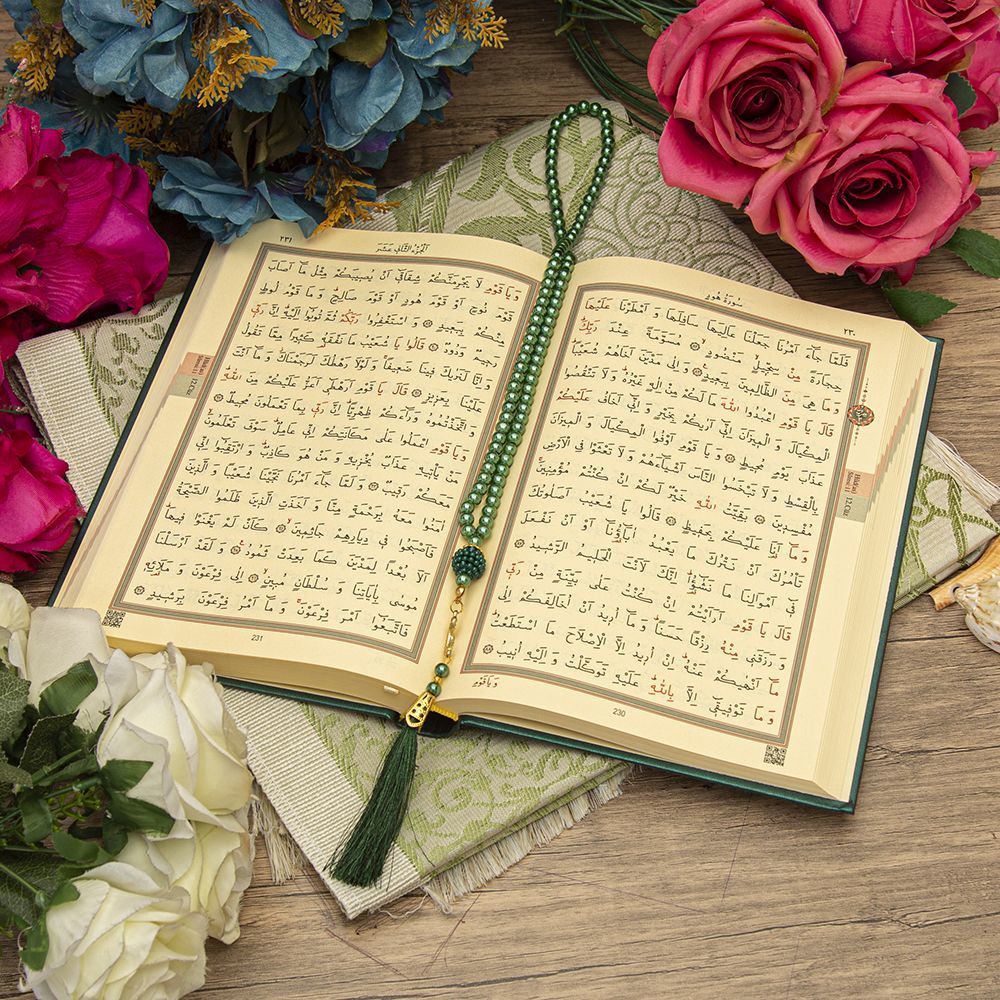 سُورَةُ هُودٍ
٢٣٠
فَلَمَّا جَٓاءَ اَمْرُنَا جَعَلْنَا عَالِيَهَا سَافِلَهَا وَ اَمْطَرْنَا عَلَيْهَا
حِجَارَةً مِنْ سِجّ۪يلٍ مَنْضُودٍ ۞ مُسَوَّمَةً عِنْدَ رَبِّكَ
وَ مَا هِيَ مِنَ الظَّالِم۪ينَ بِبَع۪يدٍ ۞ وَ اِلٰى مَدْيَنَ اَخَاهُمْ شُعَيْبًا
قَالَ يَا قَوْمِ اعْبُدُوا اللّٰهَ مَا لَكُمْ مِنْ اِلٰهٍ غَيْرُهُ وَ لَا تَنْقُصُوا
الْمِكْيَالَ وَ الْم۪يزَانَ اِنّ۪ٓي اَرٰيكُمْ بِخَيْرٍ وَ اِنّ۪ٓي اَخَافُ عَلَيْكُمْ
عَذَابَ يَوْمٍ مُح۪يطٍ ۞ وَ يَا قَوْمِ اَوْفُوا الْمِكْيَالَ وَ الْم۪يزَانَ
بِالْقِسْطِ وَ لَا تَبْخَسُوا النَّاسَ اَشْيَٓاءَهُمْ وَ لَا تَعْثَوْا فِي الْاَرْضِ
مُفْسِد۪ينَ ۞ بَقِيَّتُ اللّٰهِ خَيْرٌ لَكُمْ اِنْ كُنْتُمْ مُؤْمِن۪ينَ
وَ مَٓا اَنَا عَلَيْكُمْ بِحَف۪يظٍ ۞ قَالُوا يَا شُعَيْبُ اَصَلٰوتُكَ
تَأْمُرُكَ اَنْ نَتْرُكَ مَا يَعْبُدُ اٰبَٓاؤُ۬نَٓا اَوْ اَنْ نَفْعَلَ
ف۪ٓي اَمْوَالِنَا مَا نَشٰٓؤُ۬ا اِنَّكَ لَاَنْتَ الْحَل۪يمُ الرَّش۪يدُ ۞
قَالَ يَا قَوْمِ اَرَاَيْتُمْ اِنْ كُنْتُ عَلٰى بَيِّنَةٍ مِنْ رَبّ۪ي
وَ رَزَقَن۪ي مِنْهُ رِزْقًا حَسَنًا وَ مَٓا اُر۪يدُ اَنْ اُخَالِفَكُمْ اِلٰى
مَٓا اَنْهٰيكُمْ عَنْهُ اِنْ اُر۪يدُ اِلَّا الْاِصْلَاحَ مَا اسْتَطَعْتُ
وَ مَا تَوْف۪يق۪ٓي اِلَّا بِاللّٰهِ عَلَيْهِ تَوَكَّلْتُ وَ اِلَيْهِ اُن۪يبُ
وَيَاقَوْمِ
230
12.Cüz
اَلْجُزْءُ الثَّانِي عَشَرَ
٢٣١
وَ يَا قَوْمِ لَا يَجْرِمَنَّكُمْ شِقَاق۪ٓي اَنْ يُص۪يبَكُمْ مِثْلُ مَٓا اَصَابَ
قَوْمَ نُوحٍ اَوْ قَوْمَ هُودٍ اَوْ قَوْمَ صَالِحٍ وَ مَا قَوْمُ لُوطٍ
مِنْكُمْ بِبَع۪يدٍ ۞ وَ اسْتَغْفِرُوا رَبَّكُمْ ثُمَّ تُوبُٓوا اِلَيْهِ اِنَّ رَبّ۪ي
رَح۪يمٌ وَدُودٌ ۞ قَالُوا يَا شُعَيْبُ مَا نَفْقَهُ كَث۪يرًا مِمَّا تَقُولُ
وَ اِنَّا لَنَرٰيكَ ف۪ينَا ضَع۪يفًا وَ لَوْلَا رَهْطُكَ لَرَجَمْنَاكَ وَ مَٓا اَنْتَ
عَلَيْنَا بِعَز۪يزٍ ۞ قَالَ يَا قَوْمِ اَرَهْط۪ٓي اَعَزُّ عَلَيْكُمْ مِنَ اللّٰهِ
وَ اتَّخَذْتُمُوهُ وَرَٓاءَكُمْ ظِهْرِيًّا اِنَّ رَبّ۪ي بِمَا تَعْمَلُونَ مُح۪يطٌ ۞
وَ يَا قَوْمِ اعْمَلُوا عَلٰى مَكَانَتِكُمْ اِنّ۪ي عَامِلٌ سَوْفَ تَعْلَمُونَ
مَنْ يَأْت۪يهِ عَذَابٌ يُخْز۪يهِ وَ مَنْ هُوَ كَاذِبٌ وَ ارْتَقِبُٓوا اِنّ۪ي
مَعَكُمْ رَق۪يبٌ ۞ وَ لَمَّا جَٓاءَ اَمْرُنَا نَجَّيْنَا شُعَيْبًا وَ الَّذ۪ينَ
اٰمَنُوا مَعَهُ بِرَحْمَةٍ مِنَّا وَ اَخَذَتِ الَّذ۪ينَ ظَلَمُوا الصَّيْحَةُ
فَاَصْبَحُوا ف۪ي دِيَارِهِمْ جَاثِم۪ينَ ۞ كَاَنْ لَمْ يَغْنَوْا ف۪يهَا
اَلَا بُعْدًا لِمَدْيَنَ كَمَا بَعِدَتْ ثَمُودُ ۞ وَ لَقَدْ اَرْسَلْنَا
مُوسٰى بِاٰيَاتِنَا وَ سُلْطَانٍ مُب۪ينٍ ۞ اِلٰى فِرْعَوْنَ وَ مَلَا۬ئِه۪
فَاتَّبَعُٓوا اَمْرَ فِرْعَوْنَ وَ مَٓا اَمْرُ فِرْعَوْنَ بِرَش۪يدٍ ۞
231
12.Cüz